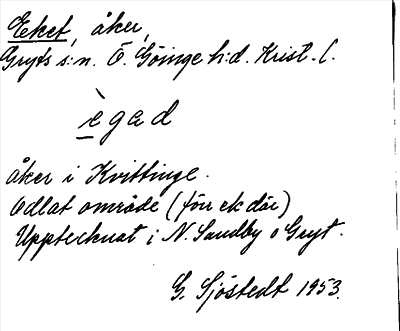 Eket, åker,
Gryts s:n. Ö. Göinge h:d. Krist. l.
ègad
åker i Kvittinge.
Odlat område (förr ek där)
Upptecknat i N. Sandby o Gryt.
G. Sjöstedt 1953.